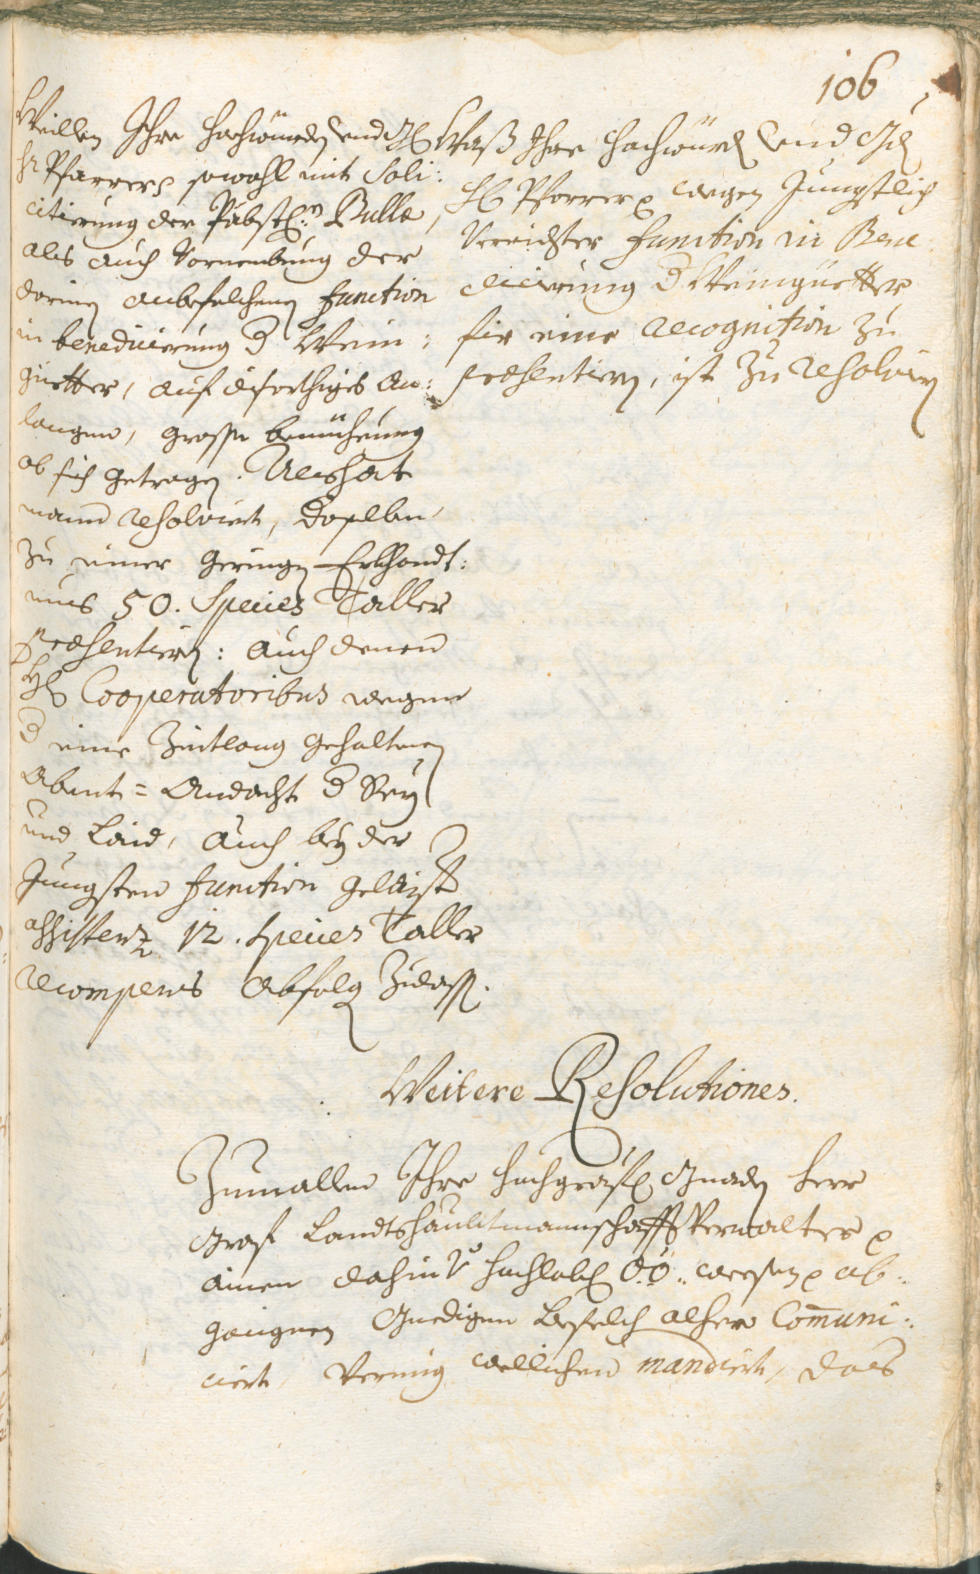 106
Weillen Ihre hochwürden und H:
hr Pfarrer sowohl mit Soli:
citierung der Päbstl:n Bulla,
als auch Vornembung der
darinen anbefelchenen function
in benedicierung d Wein:
güetter, auf diserthiges An:
langen, grosse bemüehung
ob sich getragen. Als hat
mann resolviert, Deselben
zu einer geringen Erkhandt:
nus 50. Species Taller
præsentiern: auch denen
H: Cooperatoribus wegen
d eine Zeitlang gehaltenen
Abent=Andacht
und Laid, auch bey der
Jungsten function gelaist
assistenz 12. Species Taller
recompens Abfolg zulass.
Waß Ihre hochwürd und
H: Pfarrer wegen Jüngstlich
Verrichter function in Bene:
dicierung d Weingüetter
fir eine recognition zu
præsentiern, ist zu resolviern
Weitere Resolutiones.
Zumallen Ihre hochgräfl Gnaden herr
Graf Landtshaubtmannschaffts Verwalter
ainen dahin V hochlobl O:Ö: weesen ab:
gangnen Gnedigen befelch alhero Com̄uni:
ciert, Vermüg wellichen mandiert, das